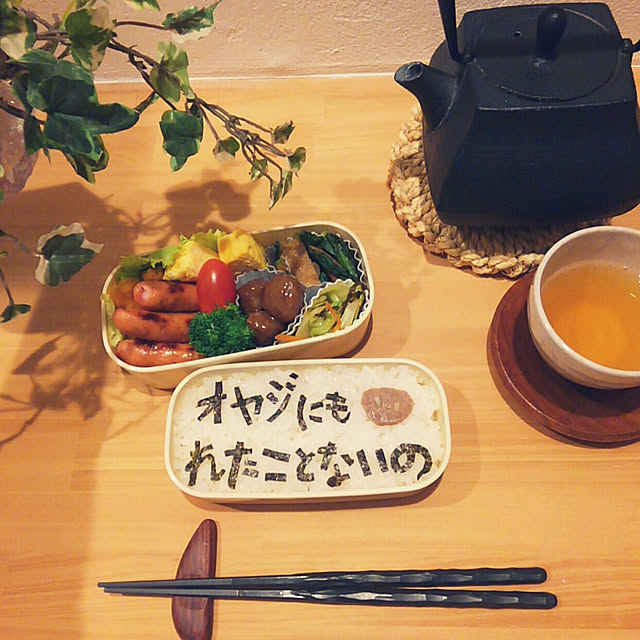 オヤジにも
れたことないの